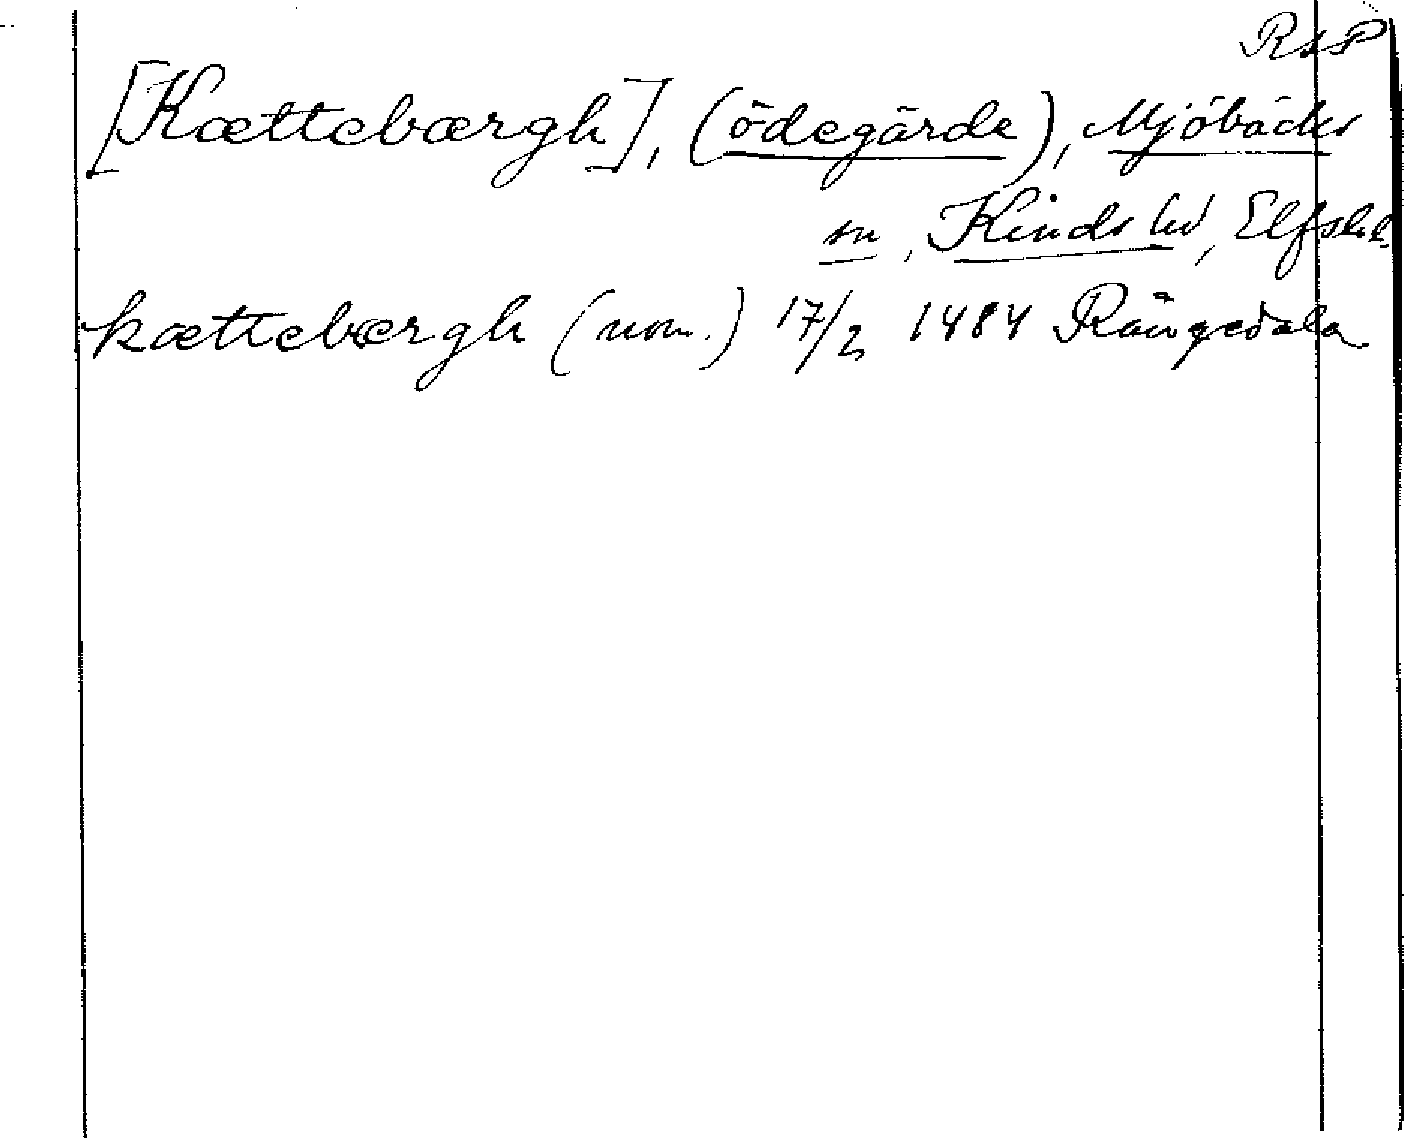 RAP
[Kættebærgh], (ödegärde), Mjöbäcks
sn, Kinds hd, Elfsb. l.
kættebærgh (nom.) 17/2 1484 Rångedala